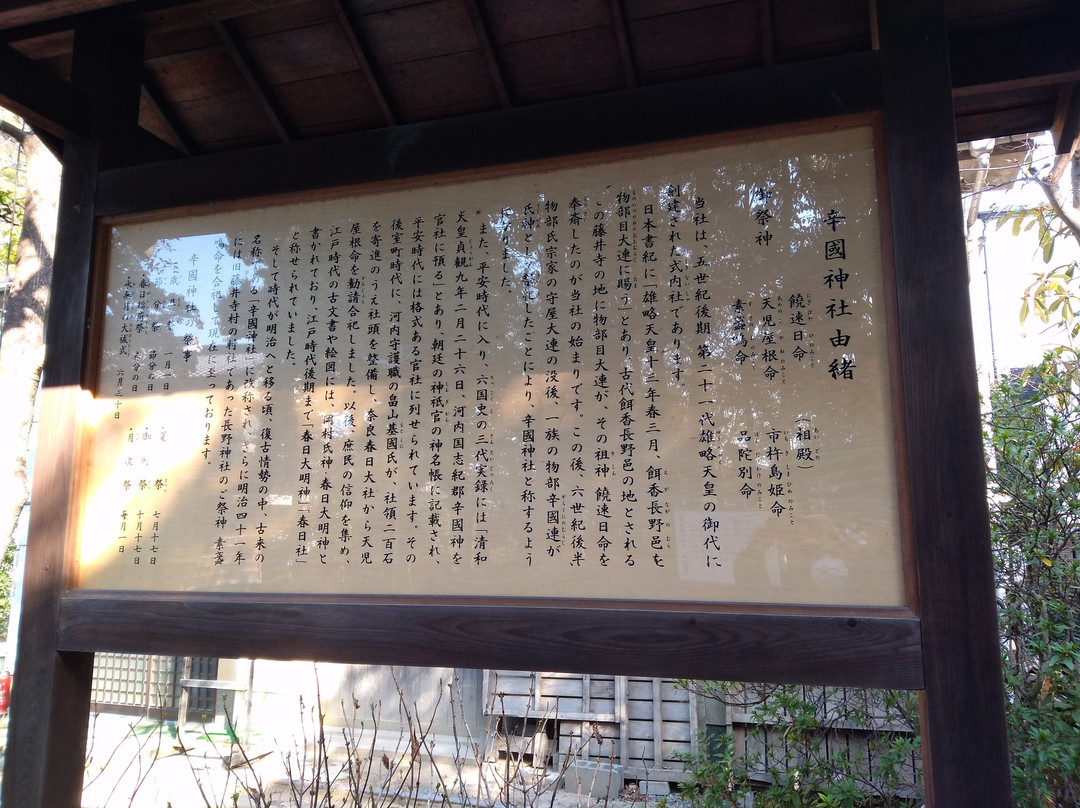 辛國神社由緒
御祭神
饒速日命
天児屋根命
素盞嗚命
（相殿）
市杵島姫命
品陀別命
当社は、五世紀後期 第二十一代雄略天皇の御代に
創建された式内社であります。
日本書紀に「雄略天皇十三年春三月、餌香長野邑を
物部目大連に賜う」とあり古代餌香長野邑の地とされる
この藤井寺の地に物部目大連が、その祖神 饒速日命を
奉斎したのが当社の始まりです。この後、六世紀後半
物部氏宗家の守屋大連の没後、一族の物部辛國連が
氏神として祭祀したことにより、辛國神社と称するよう
になりました。
また、平安時代に入り、六国史の三代実録には「清和
天皇貞観九年二月二十六日、河内国志紀郡辛國神を
官社に預る」とあり、朝廷の神祇官の神名帳に記載され、
平安時代には格式ある官社に列せられています。その
後室町時代に、河内守護職の畠山基國氏が、社領二百石
を寄進のうえ社頭を整備し、奈良春日大社から天児
屋根命を勧請合祀しました。以後、庶民の信仰を集め、
江戸時代の古文書や絵図には、岡村氏神・春日大明神と
書かれており、江戸時代後期まで「春日大明神」「春日社」
と称せられていました。
そして時代が明治へと移る頃、復古情勢の中、古来の
名称である「辛國神社」に改称され、さらに明治四十一年
には旧藤井寺村の村社であった長野神社のご祭神 素盞
嗚命を合祀して現在に至っております。
辛國神社の祭事
一月一日
夏祭 七月十七日
節分祭 節分の日
十月十七日
春分の日
月次祭 毎月一日
大祓式 六月三十日